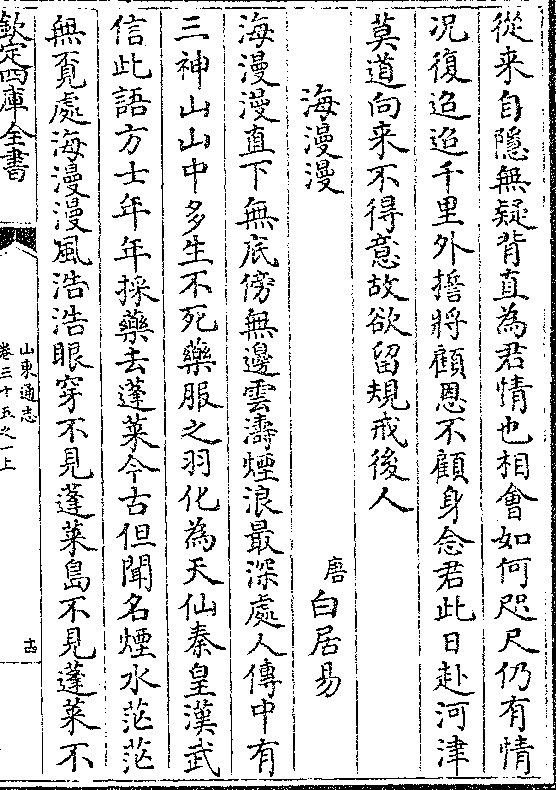 從来自隠無疑背直為君情也相會如何咫尺仍有情
况復迢迢千里外擔將顧恩不顧身念君此日赴河津
莫道向来不得意故欲留規戒後人
海漫漫
唐白居易
海漫漫直下無底傍無邊雲濤煙浪最深處人傳中有
三神山山中多生不死藥服之羽化為天仙秦皇漢武
信此語方士年年採藥去蓬萊今古但聞名煙水茫茫
無覔處海漫漫風浩浩眼穿不見蓬萊島不見蓬萊不
欽定四庫全書
山東通志
卷三十五之一上
古